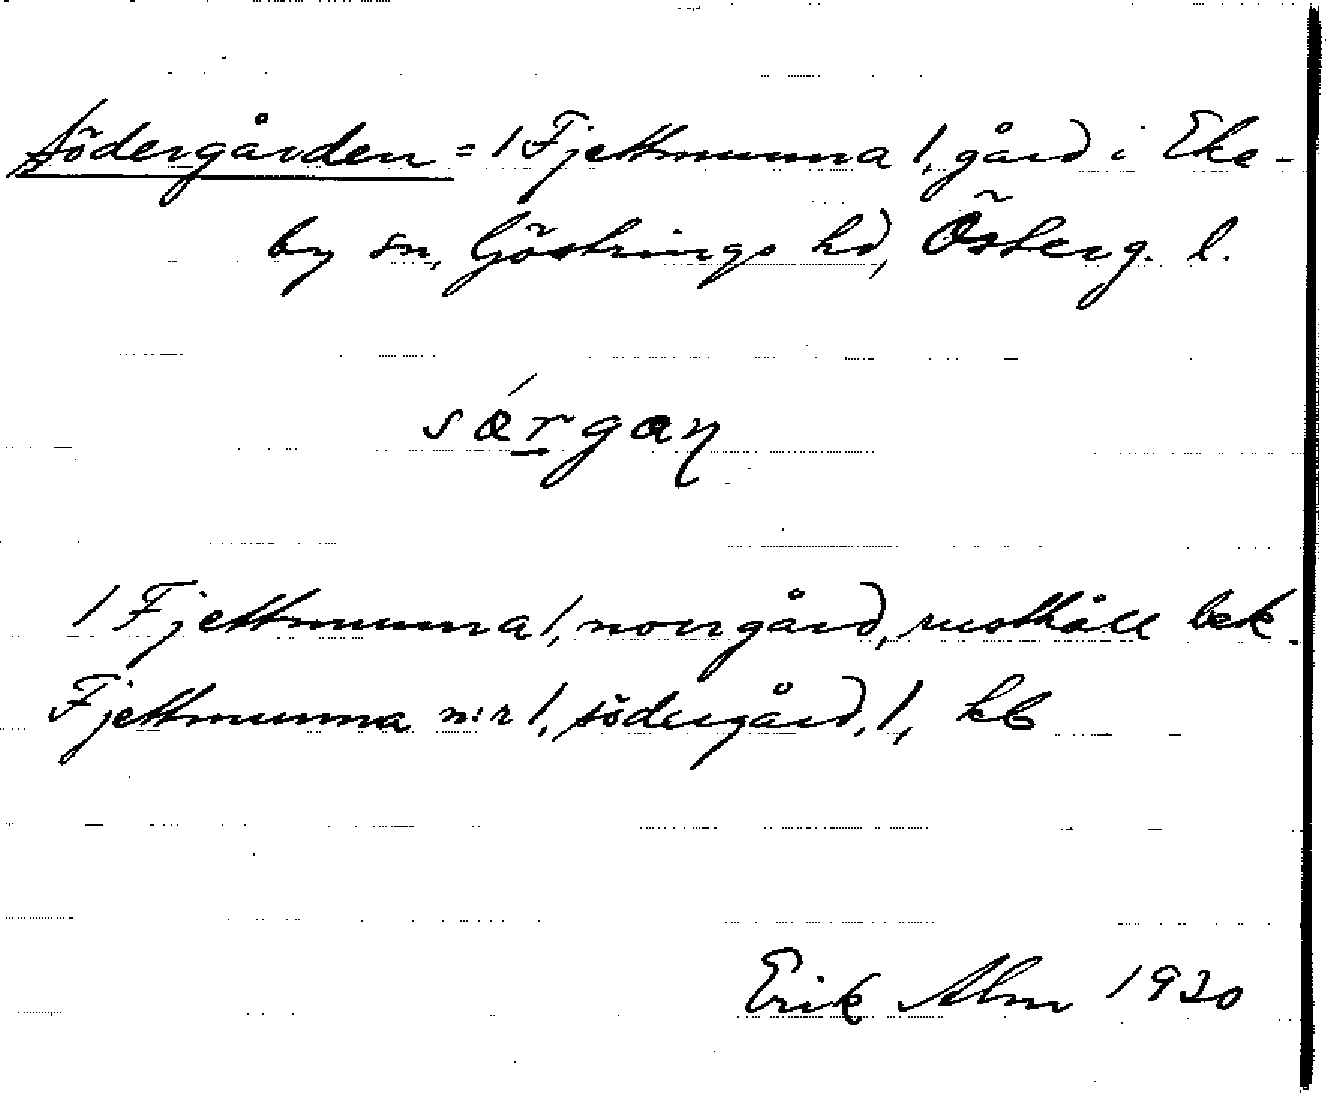 Södergården = 1 Fjettmunna 1, gård i Eke-
by sn, Göstrings hd, Österg. l.
særgan
1 Fjettmunna 1, norrgård, rusthåll bek.
Fjettmunna n:r 1, södergård, 1, kb
Erik Alm 1920